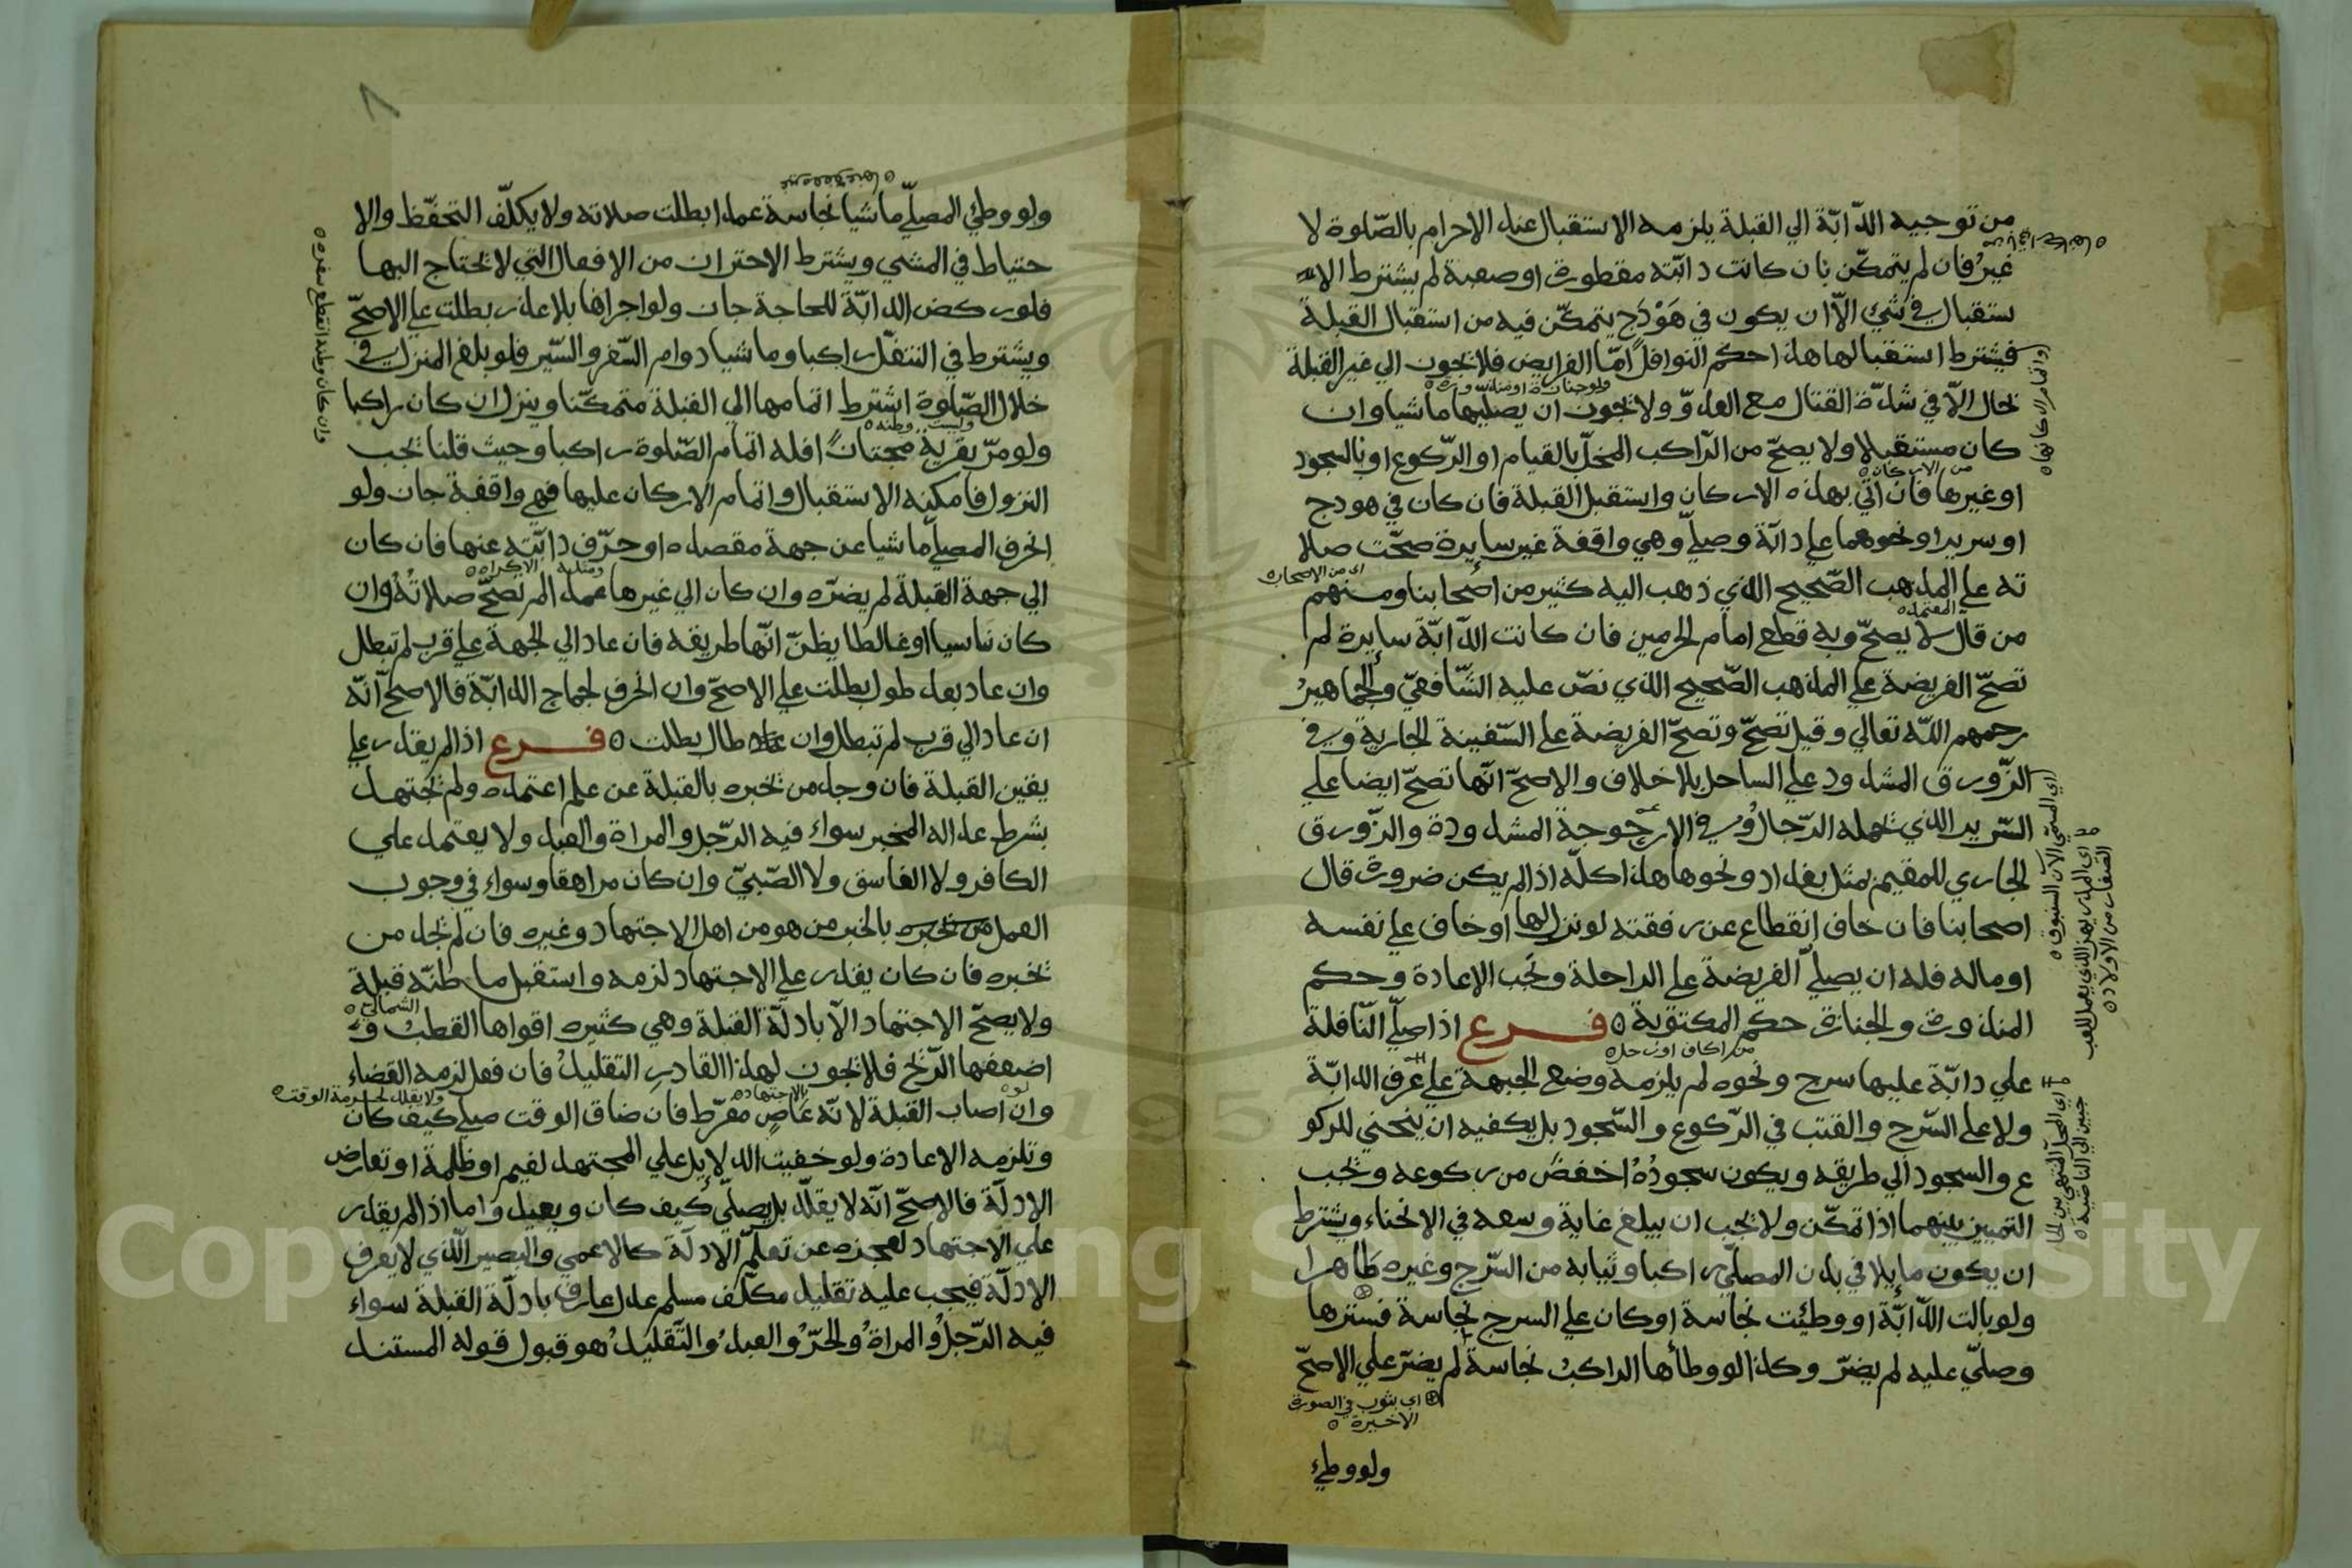 من توجيه الدّابّة الي القبلة يلزمه الاستقبال عند الاحرام بالصّلوة لا
غيرُ فان لم يتمكّن بان كانت دابّته مقطورة او صعبة لم يشترط الا
ستقبال في شيء الّا ان يكون في هَوْدَج يتمكّن فيه من استقبال القبلة
فيشترط استقبالها هذا حكم النوافل امّا الفرايض فلا تجوز الي غير القبلة
بحال الّا في شدّة القتال مع العدوّ ولا تجوز ان يصليها ماشيا وان
كان مستقبلا ولا يصحّ من الرّاكب المخلّ بالقيام او الرّكوع او بالسجود
او غيرها فان اتي بهذه الاركان واستقبل القبلة فان كان في هودج
او سرير او نحوهما علي دابّة وصلّي وهي واقفة غير سايرة صحّت صلا
ته علي المذهب الصّحيح الذي ذهب اليه كثير من اصحابنا ومنهم
من قال لا يصحّ وبه قطع امام الحرمين فان كانت الدّابّة سايرة لم
تصحّ الفريضة علي المذهب الصّحيح الذي نصّ عليه الشّافعيّ والجماهيرُ
رحمهم اللّه تعالي وقيل تصحّ وتصحّ الفريضة علي السّفينة الجارية وفي
الزّورق المشدود علي الساحل بلا خلاف والاصحّ انّها تصحّ ايضا علي
السّرير الذي تحمله الرّجالُ وفي الارجوحة المشدودة والزّورق
الجاري للمقيم بمثل بغداد ونحوها هذا كلّه اذا لم يكن ضرورة قال
اصحابنا فان خاف انقطاع عن رفقته لو نزل لها او خاف علي نفسه
او ماله فله ان يصلّي الفريضة علي الراحلة وتجب الاعادة وحكم
المنذورة والجنازة حكم المكتوبة ٥ فرع اذا صلّي النّافلة
علي دابّة عليها سرج ونحوه لم يلزمه وضع الجبهة علي عُرْف الدابّة
ولا علي السّرج والقتب في الرّكوع والسّجود بل يكفيه ان ينحني للركو
ع والسجود الي طريقه ويكون سجودُهُ اخفضَ من ركوعه وتجب
التمييز بينهما اذا تمكّن ولا يجب ان يبلغ غاية وسعه في الانحناء ويشترط
ان يكون ما يلاقي بدن المصلّي راكبا وثيابه من السّرج وغيره طاهرا
ولو بالت الدّابّة او وطئت نجاسة او كان علي السرج نجاسة فسترها
وصلّي عليه لم يضرّ وكذا لو وطأها الراكبُ نجاسة لم يضرّ علي الاصحّ
اي بثوب في الصورة
الاخيرة ٥
ولو وطيء
ولو وطئ المصلّي ماشيا نجاسة عمدا بطلت صلاته ولا يكلّف التحفّظ والا
حتياط في المشي ويشترط الاحتراز من الافعال التي لا تحتاج اليها
فلو ركض الدابّة للحاجة جاز ولو اجراها بلا عذر بطلت علي الاصحّ
ويشترط في التنفّل راكبا وماشيا دوام السّفر والسّير فلو بلغ المنزل في
خلال الصّلوة اشترط اتمامها الي القبلة متمكّنا وينزل ان كان راكبا
ولو مرّ بقرية مجتازًا فله اتمام الصّلوة راكبا وحيث قلنا تجب
النزول فامكنه الاستقبال واتمام الاركان عليها فهي واقفة جاز ولو
انحرف المصلّي ماشيا عن جهة مقصده او حرّف دابّته عنها فان كان
الي جهة القبلة لم يضرّه وان كان الي غيرها عمدا لم تصحّ صلاتُهُ وان
كان ناسيا او غالطا يظنّ انّها طريقه فان عاد الي الجهة علي قرب لم تبطل
وان عاد بعد طول بطلت علي الاصحّ وان انحرف لجماح الدابّة فالاصحّ انّه
ان عاد الي قرب لم تبطل وان طال بطلت ٥ فرع اذا لم يقدر علي
يقين القبلة فان وجد من يخبره بالقبلة عن علم اعتمده ولم يجتهد
بشرط عداله المخبر سواء فيه الرّجل والمراة والعبد ولا يعتمد علي
الكافر ولا الفاسق ولا الصّبيّ وان كان مراهقا وسواء في وجوب
العمل بالخبر من هو من اهل الاجتهاد وغيره فان لم يجد من
يخبره فان كان يقدر علي الاجتهاد لزمه واستقبل ما ظنّه قبلة
ولا يصحّ الاجتهاد الّا بادلّة القبلة وهي كثيره اقواها القطبُ و
اضعفها الرّيح فلا يجوز لهذا القادر التقليدُ فان فعل لزمه القضاء
وان اصاب القبلة لانّه عَاصٍ مفرّط فان ضاق الوقت صلي كيف كان
وتلزمه الاعادة ولو خفيت الدلايل علي المجتهد لغيم او ظلمة او تعارض
الادلّة فالاصحّ انّه لا يقلّد بل يصلّي كيف كان ويعيد واما اذا لم يقدر
علي الاجتهاد لعجزه عن تعلّم الادلّة كالاعمي والبصير الّذي لا يعرف
الادلّة فيجب عليه تقليد مكلّف مسلم عدل عارف بادلّة القبلة سواء
فيه الرّجلُ والمراةُ والحرّ والعبدُ والتّقليدُ هو قبول قوله المستند
Copyright © King Saud University
1957